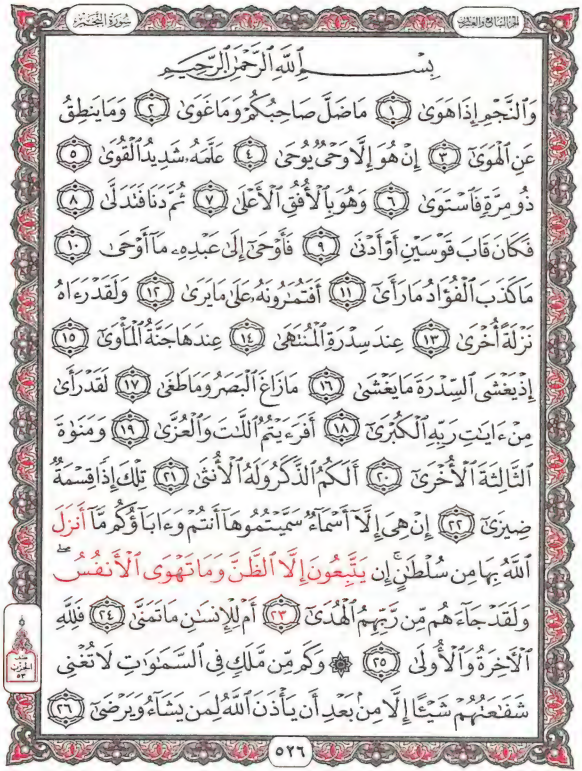 سُورَةُ النَّجْمِ
الجزء السابع والعشرون
بِسْمِ ٱللَّهِ ٱلرَّحْمَٰنِ ٱلرَّحِيمِ
وَٱلنَّجْمِ إِذَا هَوَىٰ ١ مَا ضَلَّ صَاحِبُكُمْ وَمَا غَوَىٰ ٢ وَمَا يَنطِقُ
عَنِ ٱلْهَوَىٰٓ ٣ إِنْ هُوَ إِلَّا وَحْىٌ يُوحَىٰ ٤ عَلَّمَهُۥ شَدِيدُ ٱلْقُوَىٰ ٥
ذُو مِرَّةٍ فَٱسْتَوَىٰ ٦ وَهُوَ بِٱلْأُفُقِ ٱلْأَعْلَىٰ ٧ ثُمَّ دَنَا فَتَدَلَّىٰ ٨
فَكَانَ قَابَ قَوْسَيْنِ أَوْ أَدْنَىٰ ٩ فَأَوْحَىٰٓ إِلَىٰ عَبْدِهِۦ مَآ أَوْحَىٰ ١٠
مَا كَذَبَ ٱلْفُؤَادُ مَا رَأَىٰٓ ١١ أَفَتُمَٰرُونَهُۥ عَلَىٰ مَا يَرَىٰ ١٢ وَلَقَدْ رَءَاهُ
نَزْلَةً أُخْرَىٰ ١٣ عِندَ سِدْرَةِ ٱلْمُنتَهَىٰ ١٤ عِندَهَا جَنَّةُ ٱلْمَأْوَىٰٓ ١٥
إِذْ يَغْشَى ٱلسِّدْرَةَ مَا يَغْشَىٰ ١٦ مَا زَاغَ ٱلْبَصَرُ وَمَا طَغَىٰ ١٧ لَقَدْ رَأَىٰ
مِنْ ءَايَٰتِ رَبِّهِ ٱلْكُبْرَىٰٓ ١٨ أَفَرَءَيْتُمُ ٱللَّٰتَ وَٱلْعُزَّىٰ ١٩ وَمَنَوٰةَ
ٱلثَّالِثَةَ ٱلْأُخْرَىٰٓ ٢٠ أَلَكُمُ ٱلذَّكَرُ وَلَهُ ٱلْأُنثَىٰ ٢١ تِلْكَ إِذًا قِسْمَةٌ
ضِيزَىٰٓ ٢٢ إِنْ هِىَ إِلَّآ أَسْمَآءٌ سَمَّيْتُمُوهَآ أَنتُمْ وَءَابَآؤُكُم مَّآ أَنزَلَ
ٱللَّهُ بِهَا مِن سُلْطَٰنٍ ۚ إِن يَتَّبِعُونَ إِلَّا ٱلظَّنَّ وَمَا تَهْوَى ٱلْأَنفُسُ ۖ
وَلَقَدْ جَآءَهُم مِّن رَّبِّهِمُ ٱلْهُدَىٰٓ ٢٣ أَمْ لِلْإِنسَٰنِ مَا تَمَنَّىٰ ٢٤ فَلِلَّهِ
ٱلْـَٔاخِرَةُ وَٱلْأُولَىٰ ٢٥ ۞ وَكَم مِّن مَّلَكٍ فِى ٱلسَّمَٰوَٰتِ لَا تُغْنِى
شَفَٰعَتُهُمْ شَيْـًٔا إِلَّا مِنۢ بَعْدِ أَن يَأْذَنَ ٱللَّهُ لِمَن يَشَآءُ وَيَرْضَىٰٓ ٢٦
الحزب
٥٣
٥٢٦